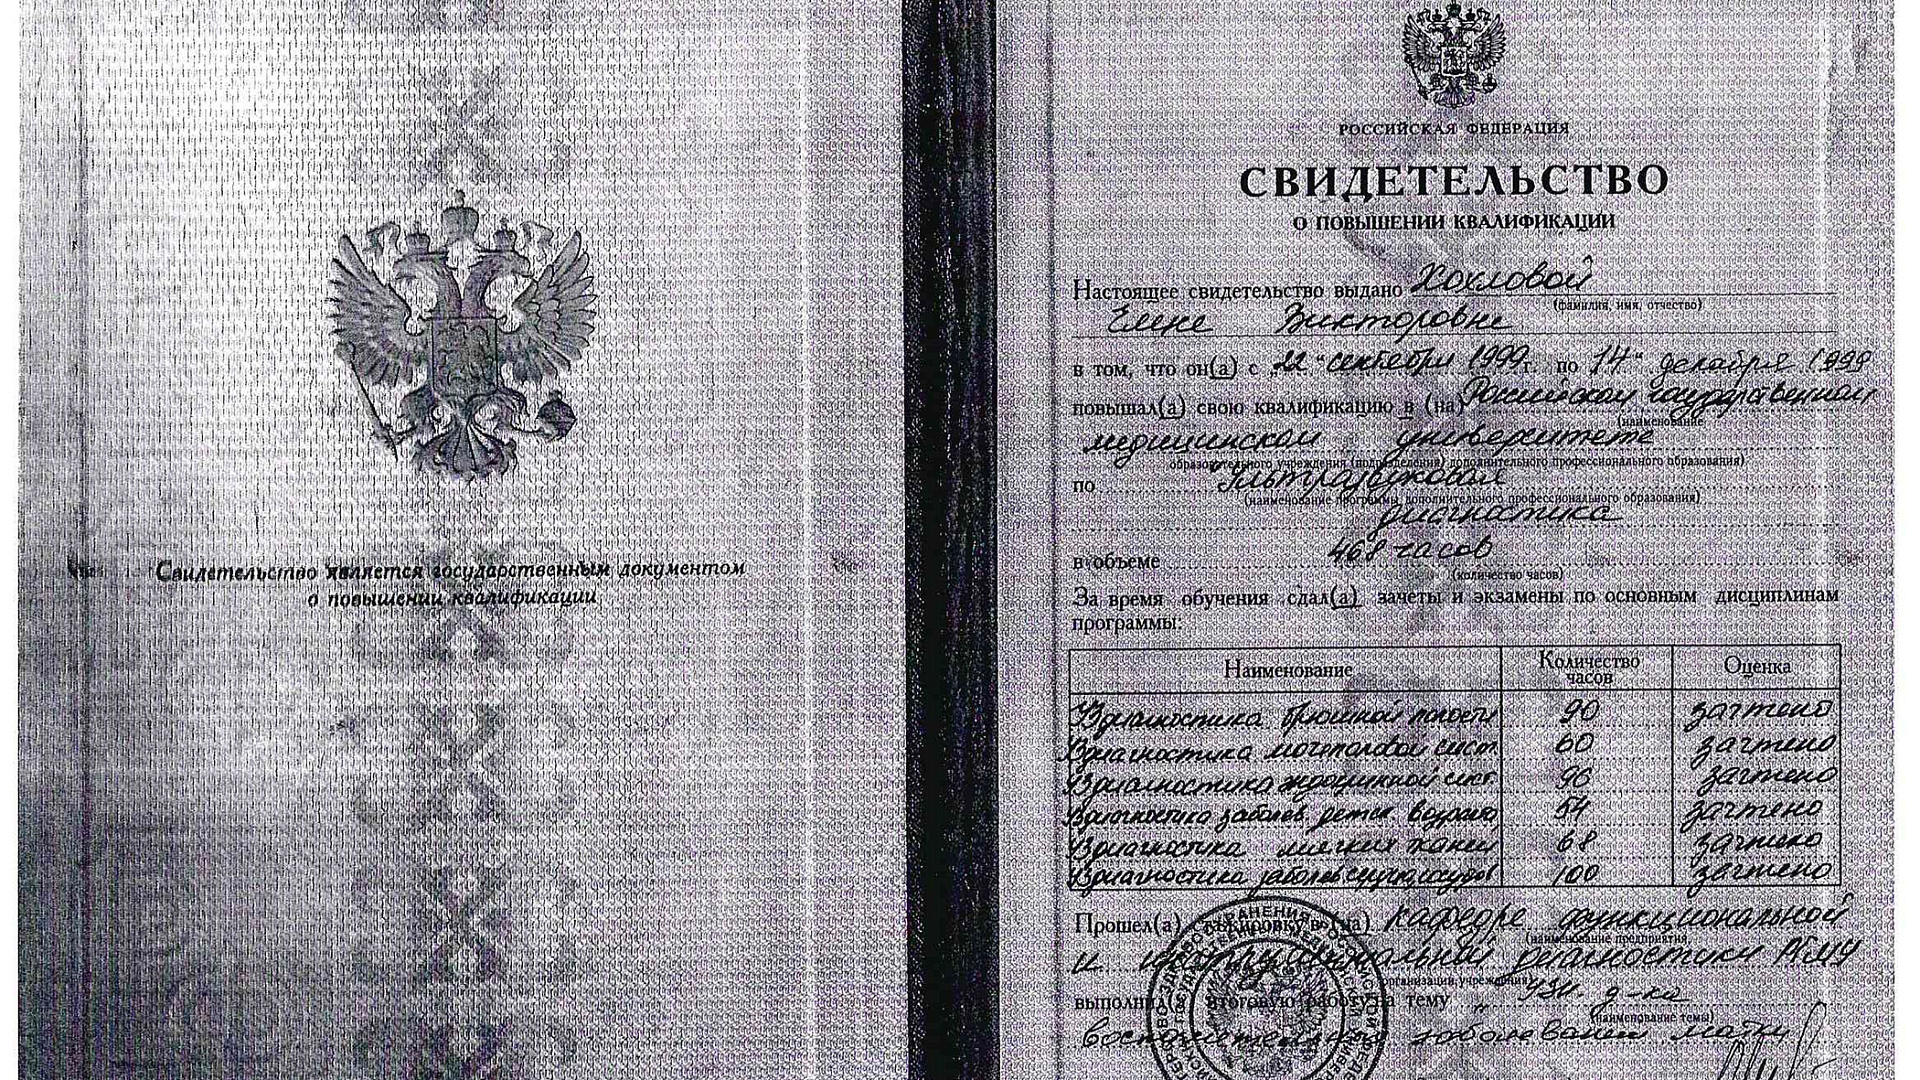 Свидетельство является государственным документом
о повышении квалификации
РОССИЙСКАЯ ФЕДЕРАЦИЯ
СВИДЕТЕЛЬСТВО
О ПОВЫШЕНИИ КВАЛИФИКАЦИИ
Настоящее свидетельство выдано Хохловой
(фамилия, имя, отчество)
Елене Викторовне
в том, что он(а) с 22 " сентября 1999 г. по 14 " декабря 1999
повышал(а) свою квалификацию в (на) Российском государственном
(наименование
медицинском университете
образовательного учреждения (подразделения) дополнительного профессионального образования)
по Ультразвуковая
(наименование программы дополнительного профессионального образования)
диагностика
в объеме 468 часов
(количество часов)
За время обучения сдал(а) зачеты и экзамены по основным дисциплинам
программы:
Наименование Количество часов Оценка
диагностика брюшной полости 90 зачтено
диагностика мочеполовой сист. 60 зачтено
диагностика сист. 96 зачтено
диагностика заболев. детск. возраста 54 зачтено
диагностика мягких ткани 68 зачтено
диагностика заболев. сосудов 100 зачтено
Прошел(а) стажировку в (на) Кафедре функциональной
(наименование предприятия,
и диагностики РГМУ
организации, учреждения)
выполнил(а) итоговую работу на тему УЗИ. д-ка
(наименование темы)
воспалительных заболеваний матки